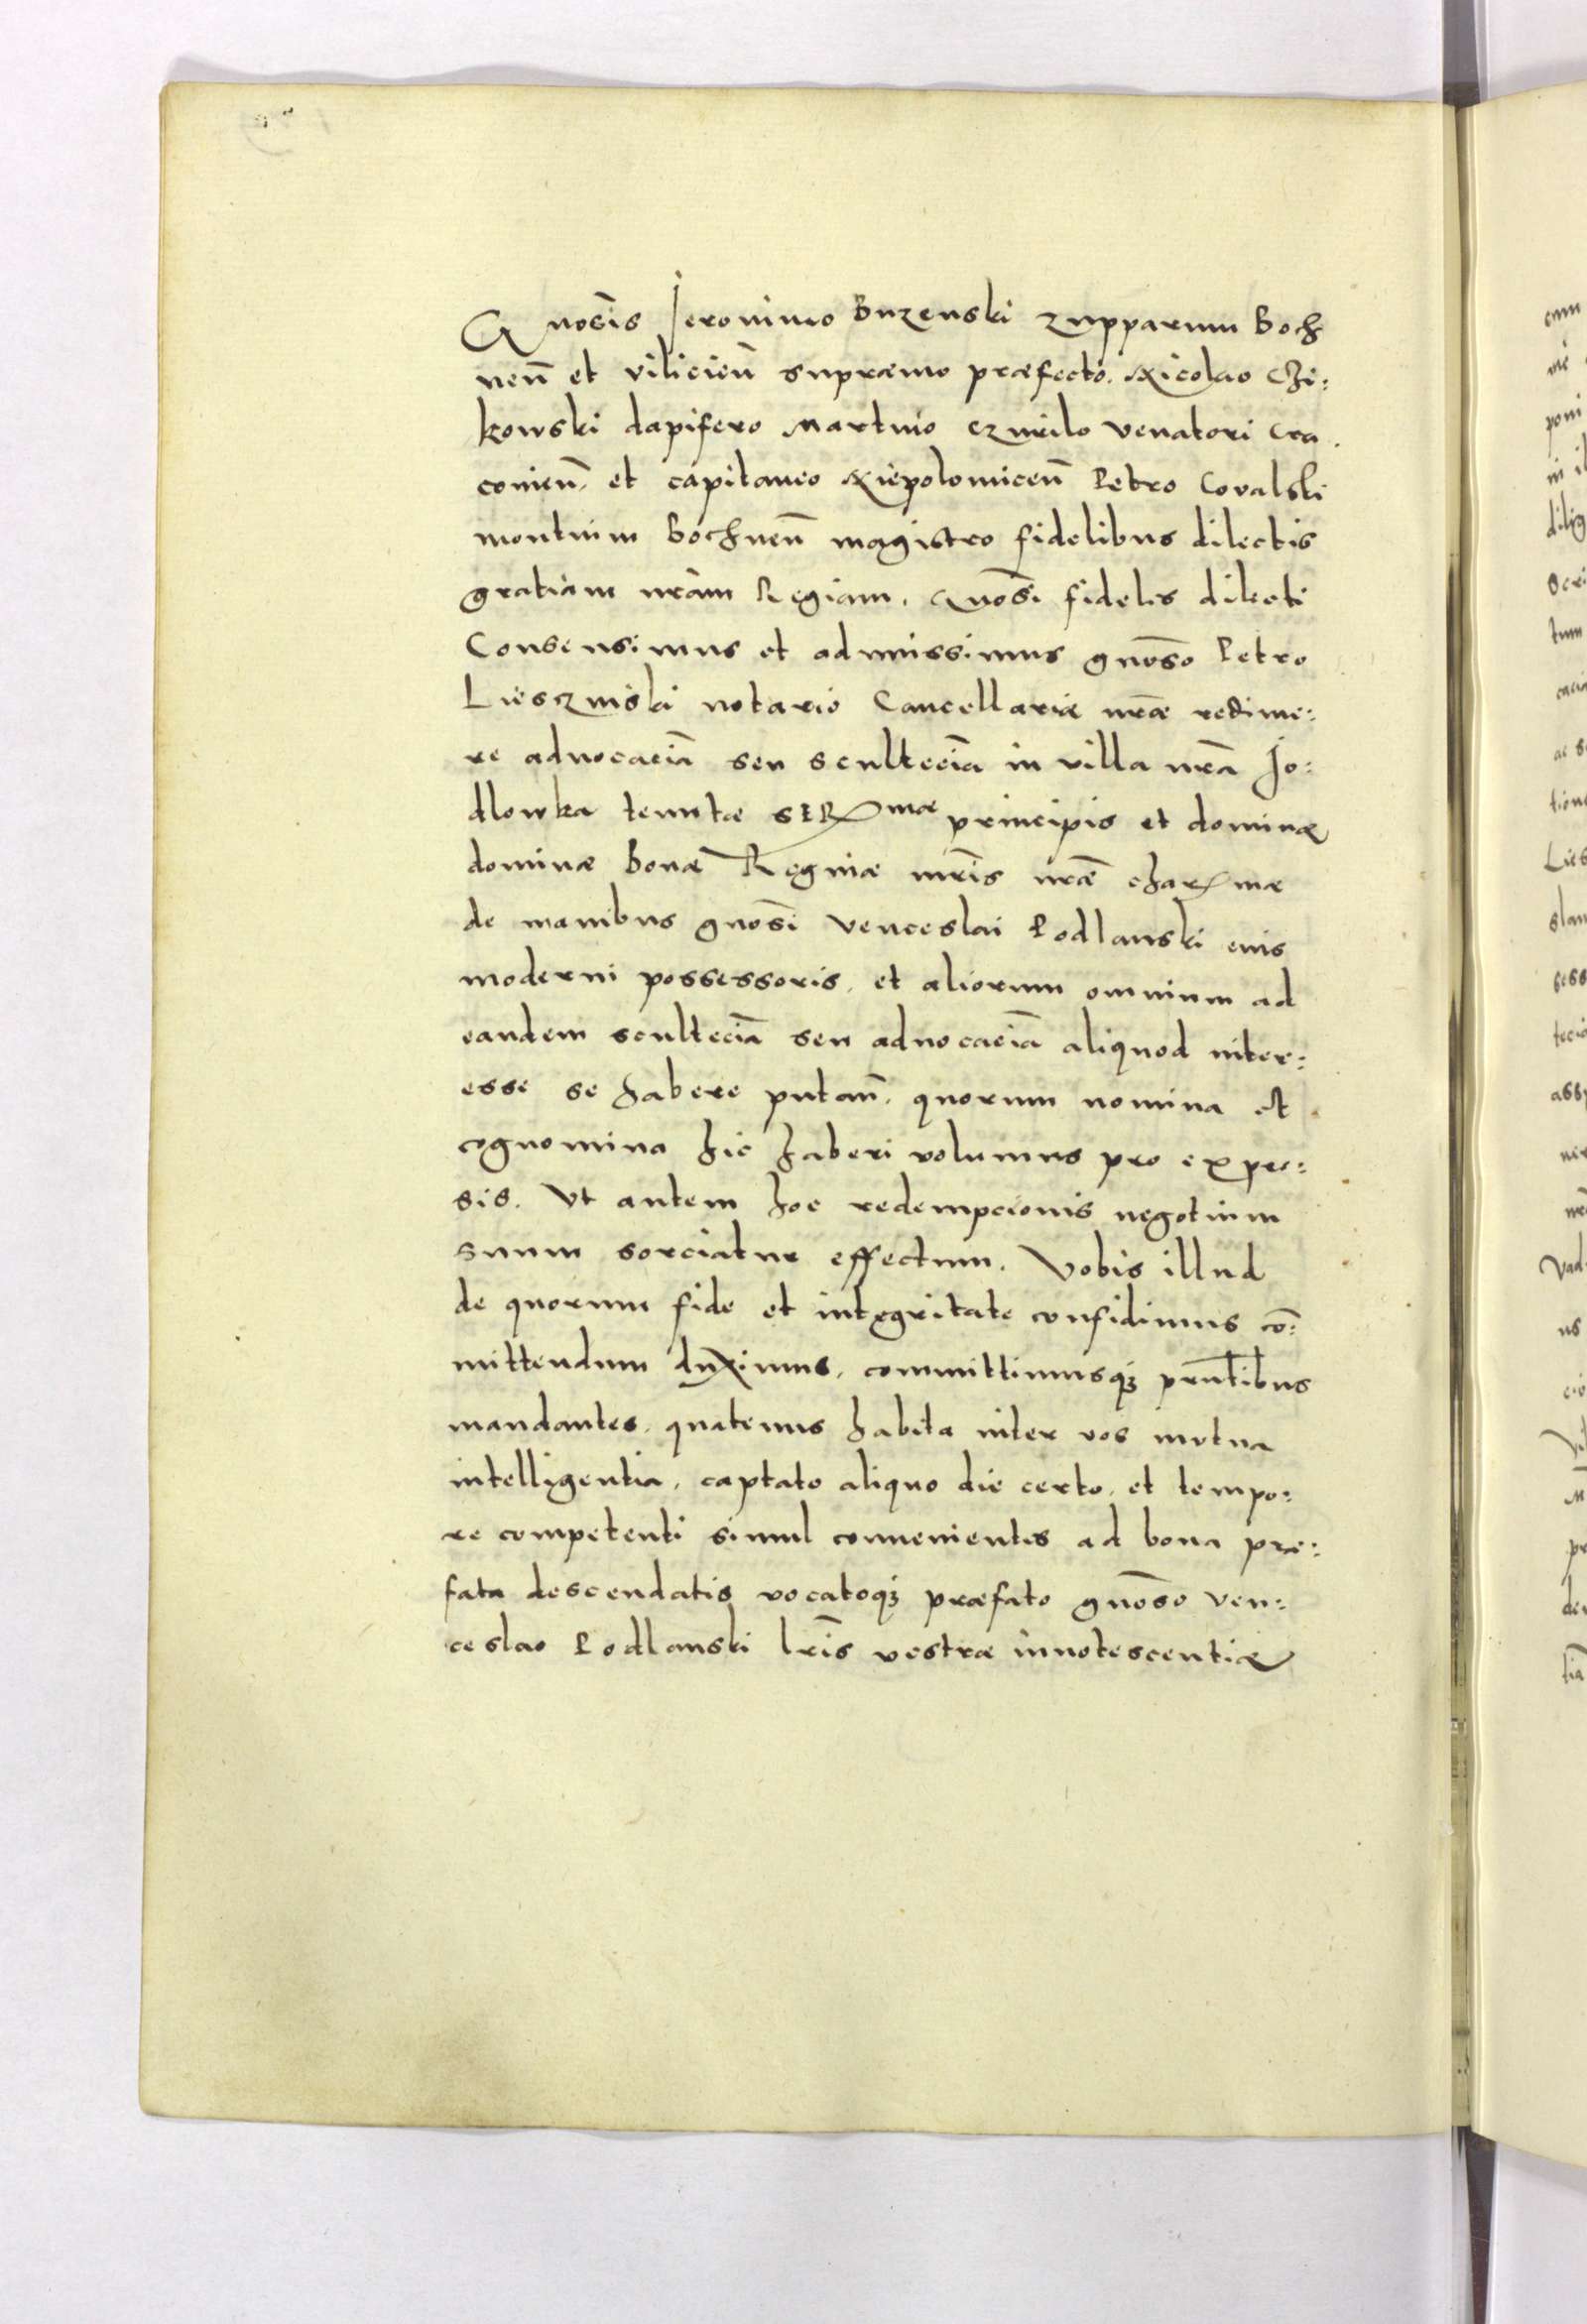 Gnosis Jeronimo Buzenski zupparum Boch
nen̄ et vilicien̄ supræmo præfecto. Nicolao Czi:
kowski dapifero Martino czurilo venatori Cra
couien̄. et capitaneo Niepolomicen̄ Petro Covalski
montium Bochnen̄ magistro fidelibus dilectis
gratiam nr̄am Regiam. Gnōsi fideles dilecti
Consensimus et admissimus gnōso Petro
Liesczinski notario Cancellariæ nr̄æ redime:
re aduocaciā seu scultecia in villa nr̄a Jo:
dlowka tenutæ SER mae principis et dominæ
dominæ Bonæ Reginæ mr̄is nr̄æ char mæ
de manibus gnōsi Venceslai Podlanski eius
moderni possessoris. et aliorum omnium ad
eandem scultēciā seu aduocaciā aliquod inter:
esse se habere putan̄. quorum nomina et
cognomina hic haberi volumus pro expres:
sis. Ut autem hoc redempcionis negotium
suum sorciatur effectum. Vobis illud
de quorum fide et integritate confidimus cō:
mittendum duximus. committimusqꝫ prn̄tibus
mandantes. quatenus habita inter vos mutua
intelligentia. captato aliquo die certo. et tempo:
re competenti simul conuenientes ad bona præ:
fata descendatis vocatoqꝫ præfato gnōso Ven:
ceslao Podlanski lr̄is vestræ innotescentiæ